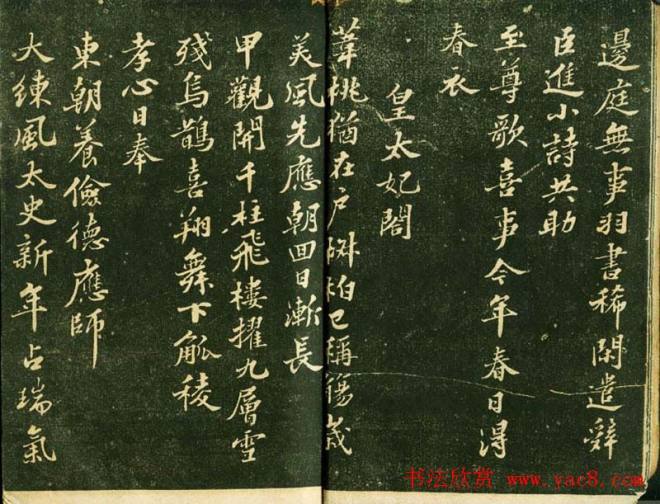 邊庭無事羽書稀閑遣辭
臣進小詩共助
至尊歌喜事今年春日得
春衣
皇太妃閣
葦桃猶在戶椒柏已稱觴歲
美風先應朝回日漸長
甲觀開千柱飛樓擢九層雪
殘烏鵲喜翔舞下觚稜
孝心日奉
東朝養儉德應師
大練風太史新年占瑞氣
书法欣赏 www.yac8.com